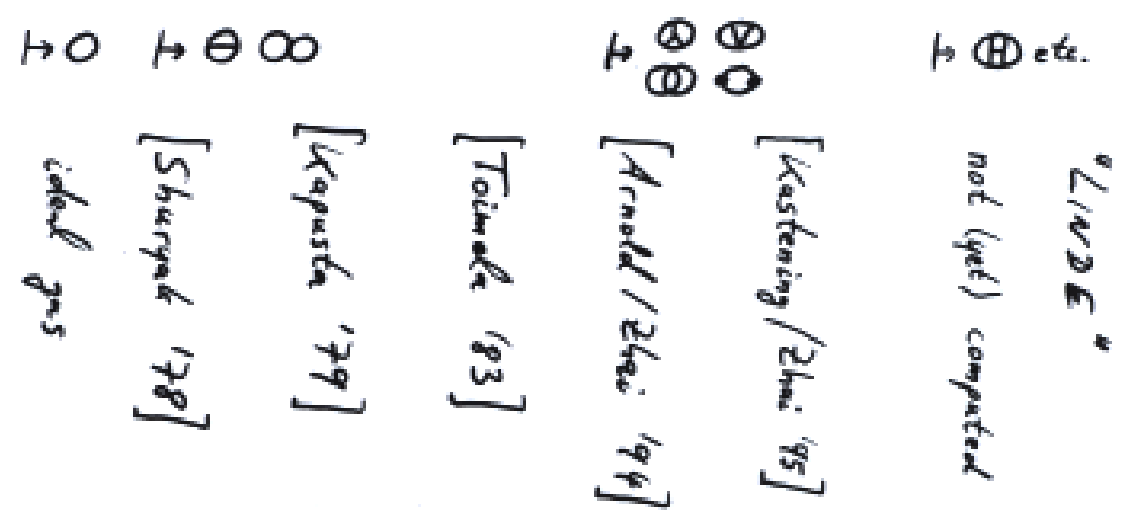 etc.
ideal gas
[Shuryak '78]
[Kapusta '79]
[Toimela '83]
[Arnold/Zhai '94]
[Kastening/Zhai '95]
not (yet) computed
"LINDE"